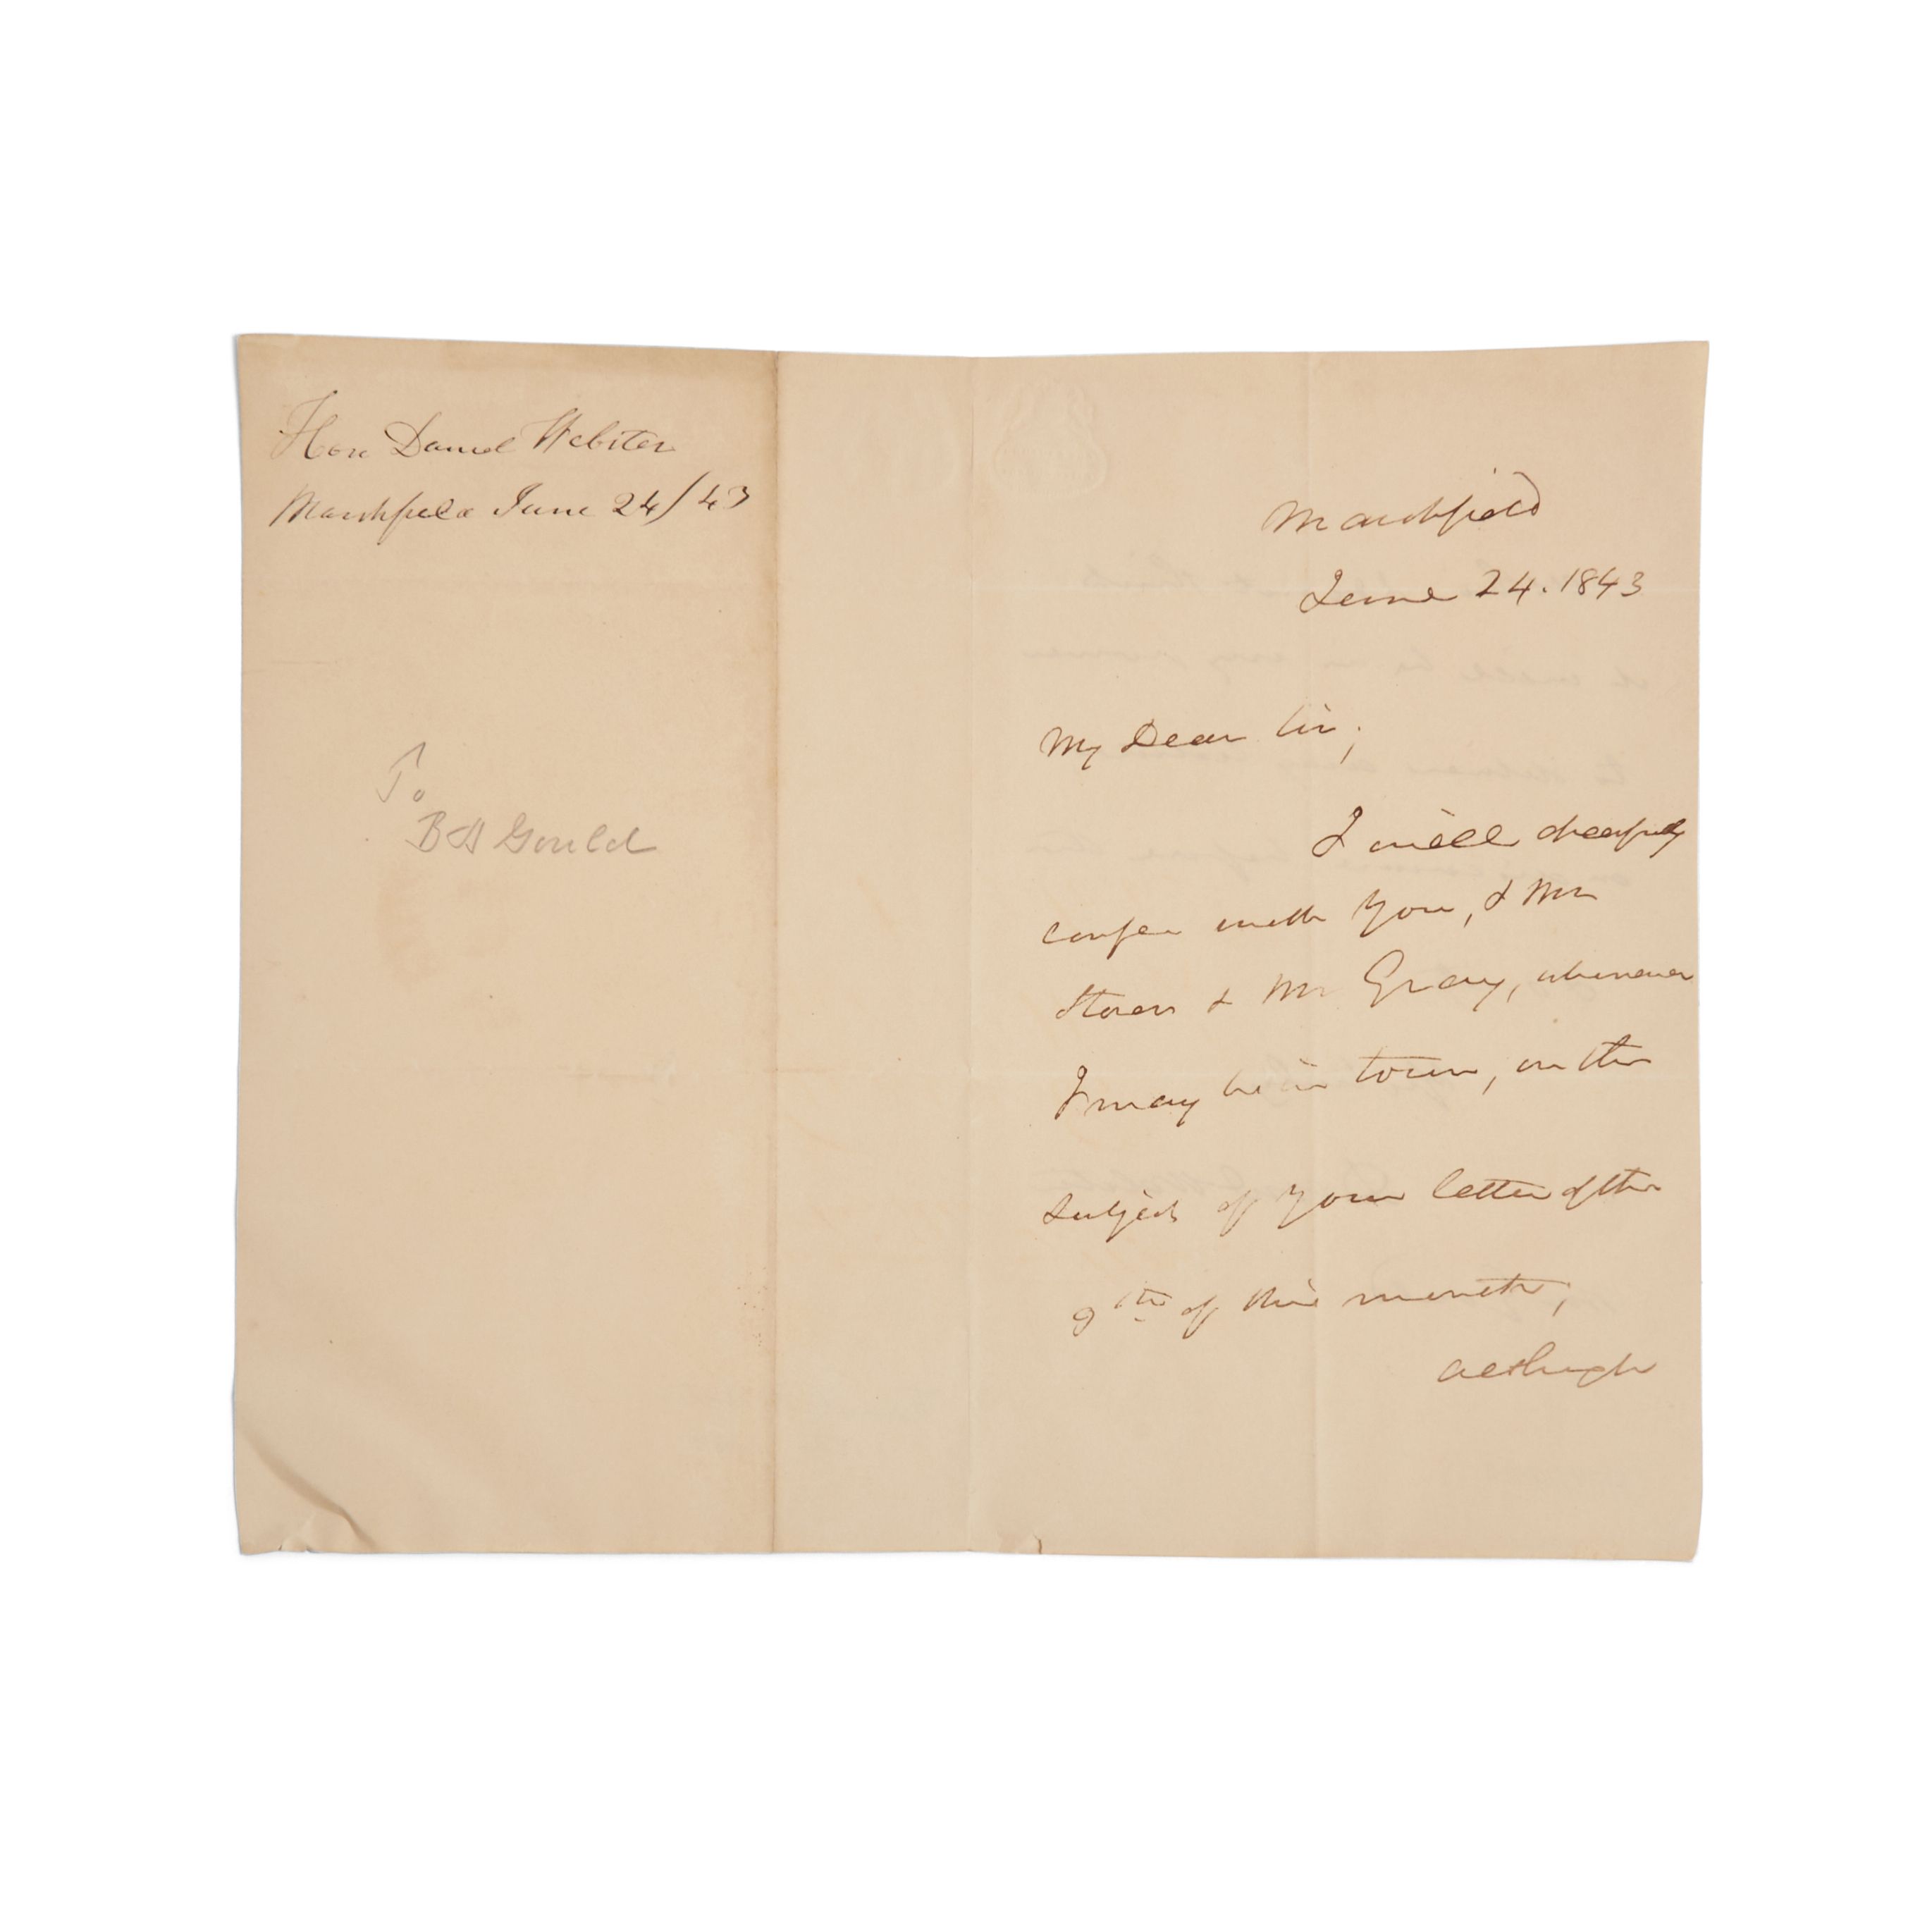 Hon Daniel Webster
Marshfield June 24/43
To
B A Gould
Marshfield
June 24. 1843
My Dear Sir;
I will cheerfully
confer with you, & Mr
& Mr Gray, whenever
I may be in town, on the
subject of your letter of the
9th of this month;
although